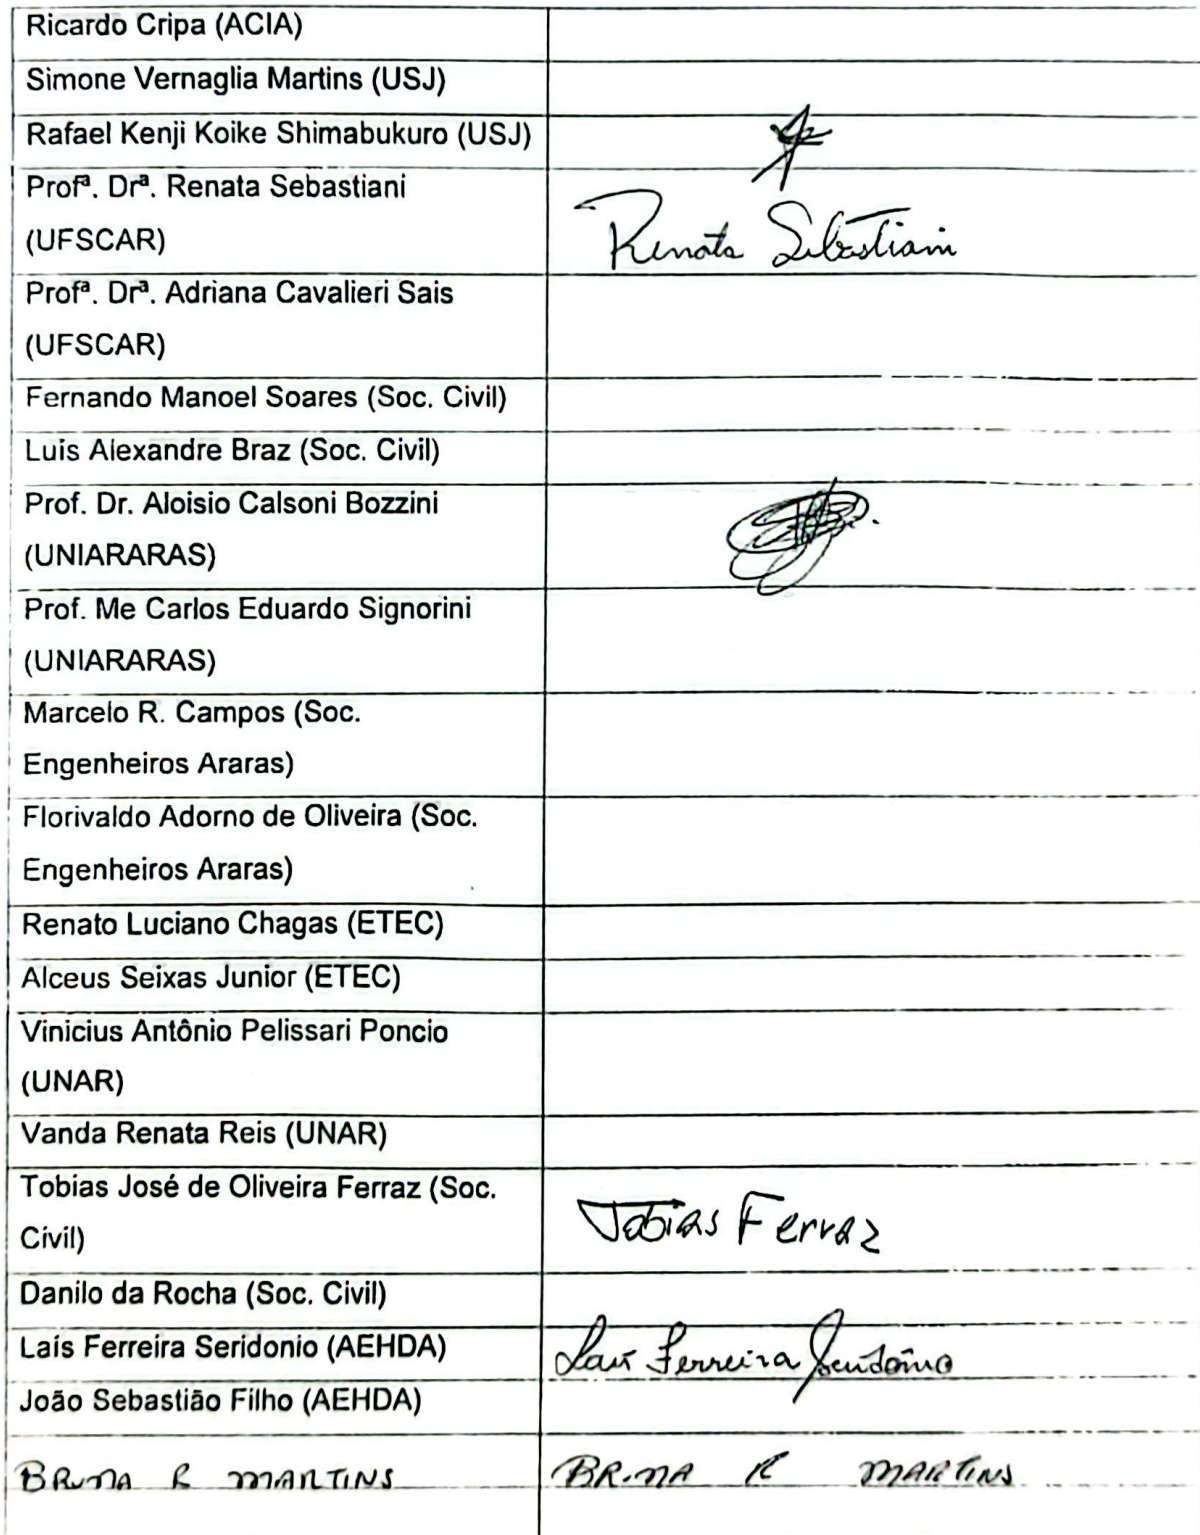 Ricardo Cripa (ACIA)
Simone Vernaglia Martins (USJ)
Rafael Kenji Koike Shimabukuro (USJ)
Profª. Drª. Renata Sebastiani
(UFSCAR)
Renata Sebastiani
Profª. Drª. Adriana Cavalieri Sais
(UFSCAR)
Fernando Manoel Soares (Soc. Civil)
Luis Alexandre Braz (Soc. Civil)
Prof. Dr. Aloisio Calsoni Bozzini
(UNIARARAS)
Prof. Me Carlos Eduardo Signorini
(UNIARARAS)
Marcelo R. Campos (Soc.
Engenheiros Araras)
Florivaldo Adorno de Oliveira (Soc.
Engenheiros Araras)
Renato Luciano Chagas (ETEC)
Alceus Seixas Junior (ETEC)
Vinicius Antônio Pelissari Poncio
(UNAR)
Vanda Renata Reis (UNAR)
Tobias José de Oliveira Ferraz (Soc.
Civil)
Tobias Ferraz
Danilo da Rocha (Soc. Civil)
Laís Ferreira Seridonio (AEHDA)
Laís Ferreira Seridonio
João Sebastião Filho (AEHDA)
BRUNA R MARTINS
BRUNA R MARTINS